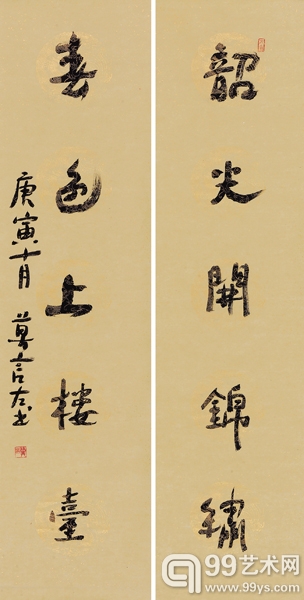 韶光開錦繡
春色上楼臺
庚寅十月 莫言左书
99艺术网
www.99ys.com